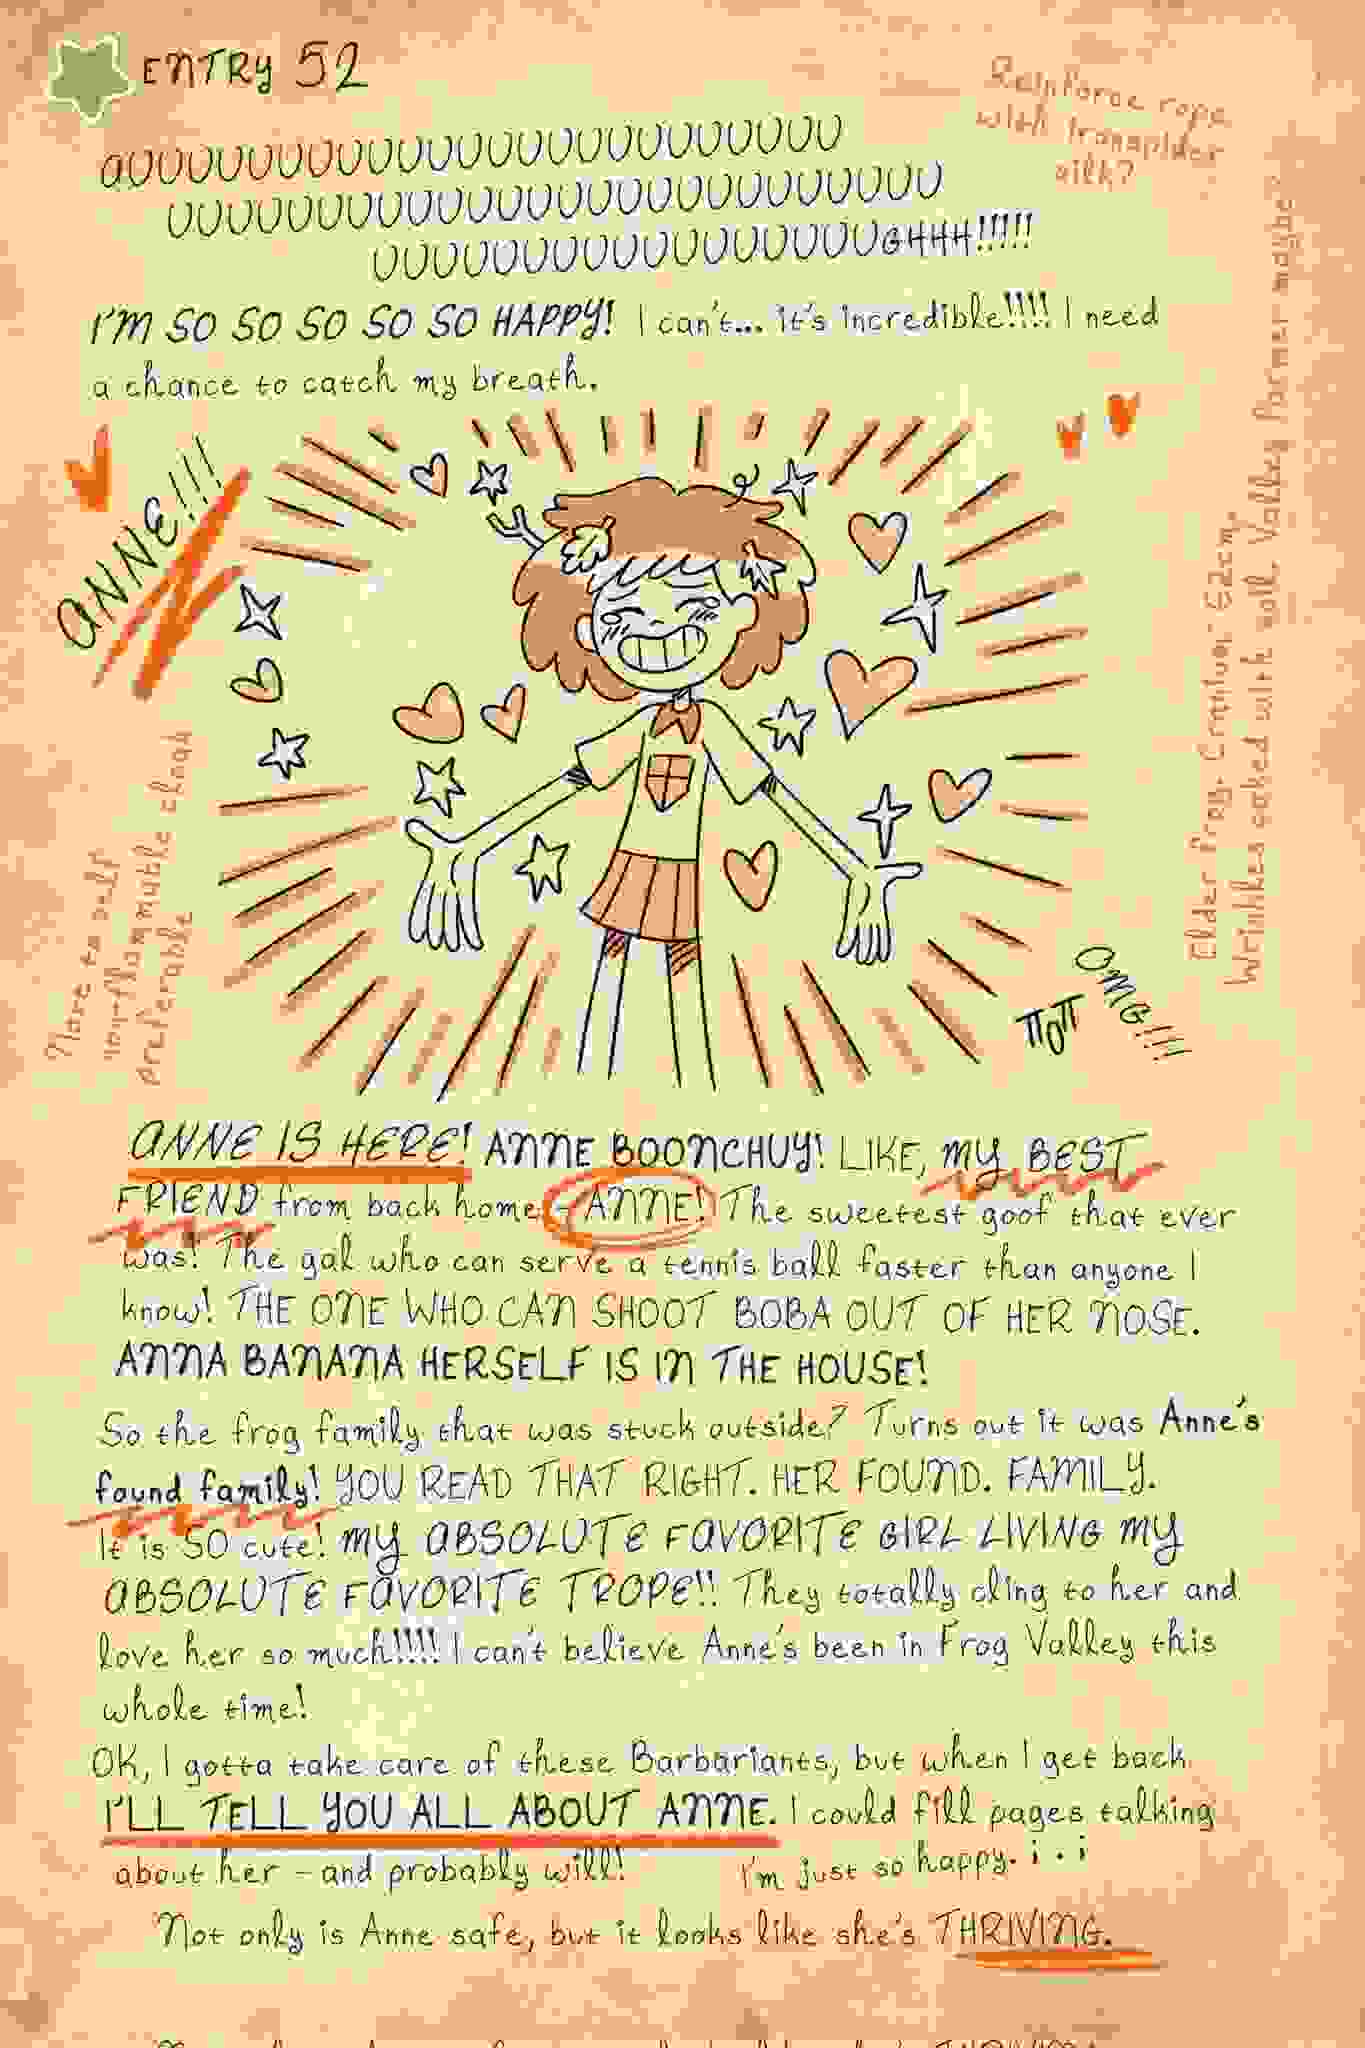 ENTRY 52
Reinforce rope
with ironspider
silk?
AUUUUUUUUUUUUUUUUUUUUUUUU
UUUUUUUUUUUUUUUUUUUUUUUUUU
UUUUUUUUUUUUUUUUUGHHH!!!!!
I'M SO SO SO SO SO HAPPY! I can't... it's incredible!!!! I need
a chance to catch my breath.
ANNE!!!
Elder Frog. Cranium: 52cm.
Wrinkles caked with soil. Valley farmer maybe?
Note to self
non-flammable cloak
preferable
OMG!!!
ANNE IS HERE! ANNE BOONCHUY! LIKE, MY BEST
FRIEND from back home - ANNE! The sweetest goof that ever
was! The gal who can serve a tennis ball faster than anyone I
know! THE ONE WHO CAN SHOOT BOBA OUT OF HER NOSE.
ANNA BANANA HERSELF IS IN THE HOUSE!
So the frog family that was stuck outside? Turns out it was Anne's
found family! YOU READ THAT RIGHT. HER FOUND. FAMILY.
It is SO cute! MY ABSOLUTE FAVORITE GIRL LIVING MY
ABSOLUTE FAVORITE TROPE!! They totally cling to her and
love her so much!!!! I can't believe Anne's been in Frog Valley this
whole time!
OK, I gotta take care of these Barbariants, but when I get back
I'LL TELL YOU ALL ABOUT ANNE. I could fill pages talking
about her - and probably will! I'm just so happy. i . i
Not only is Anne safe, but it looks like she's THRIVING.